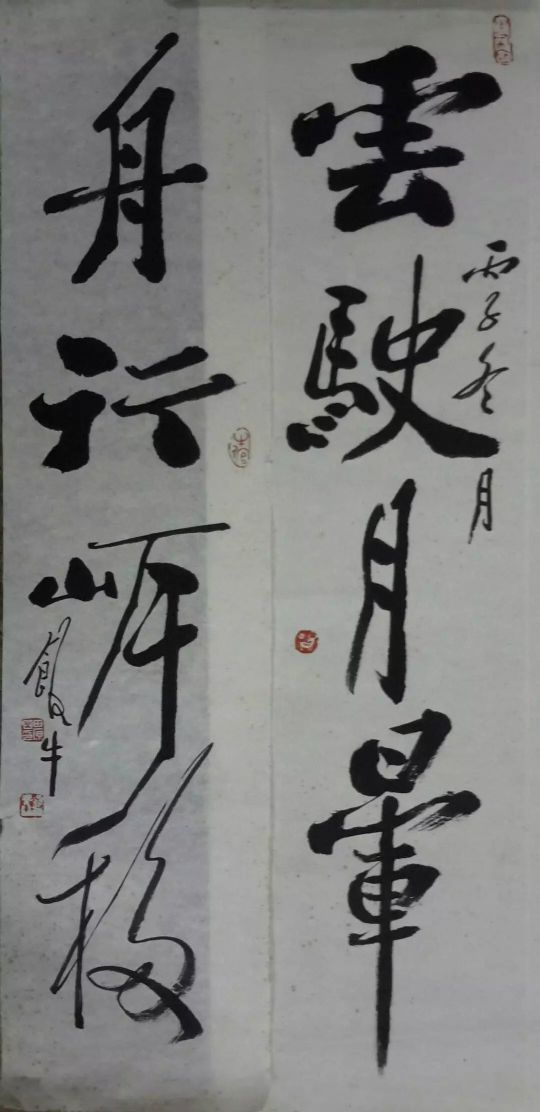 雲駛月暈
丙子冬月
舟行岸移
飯牛